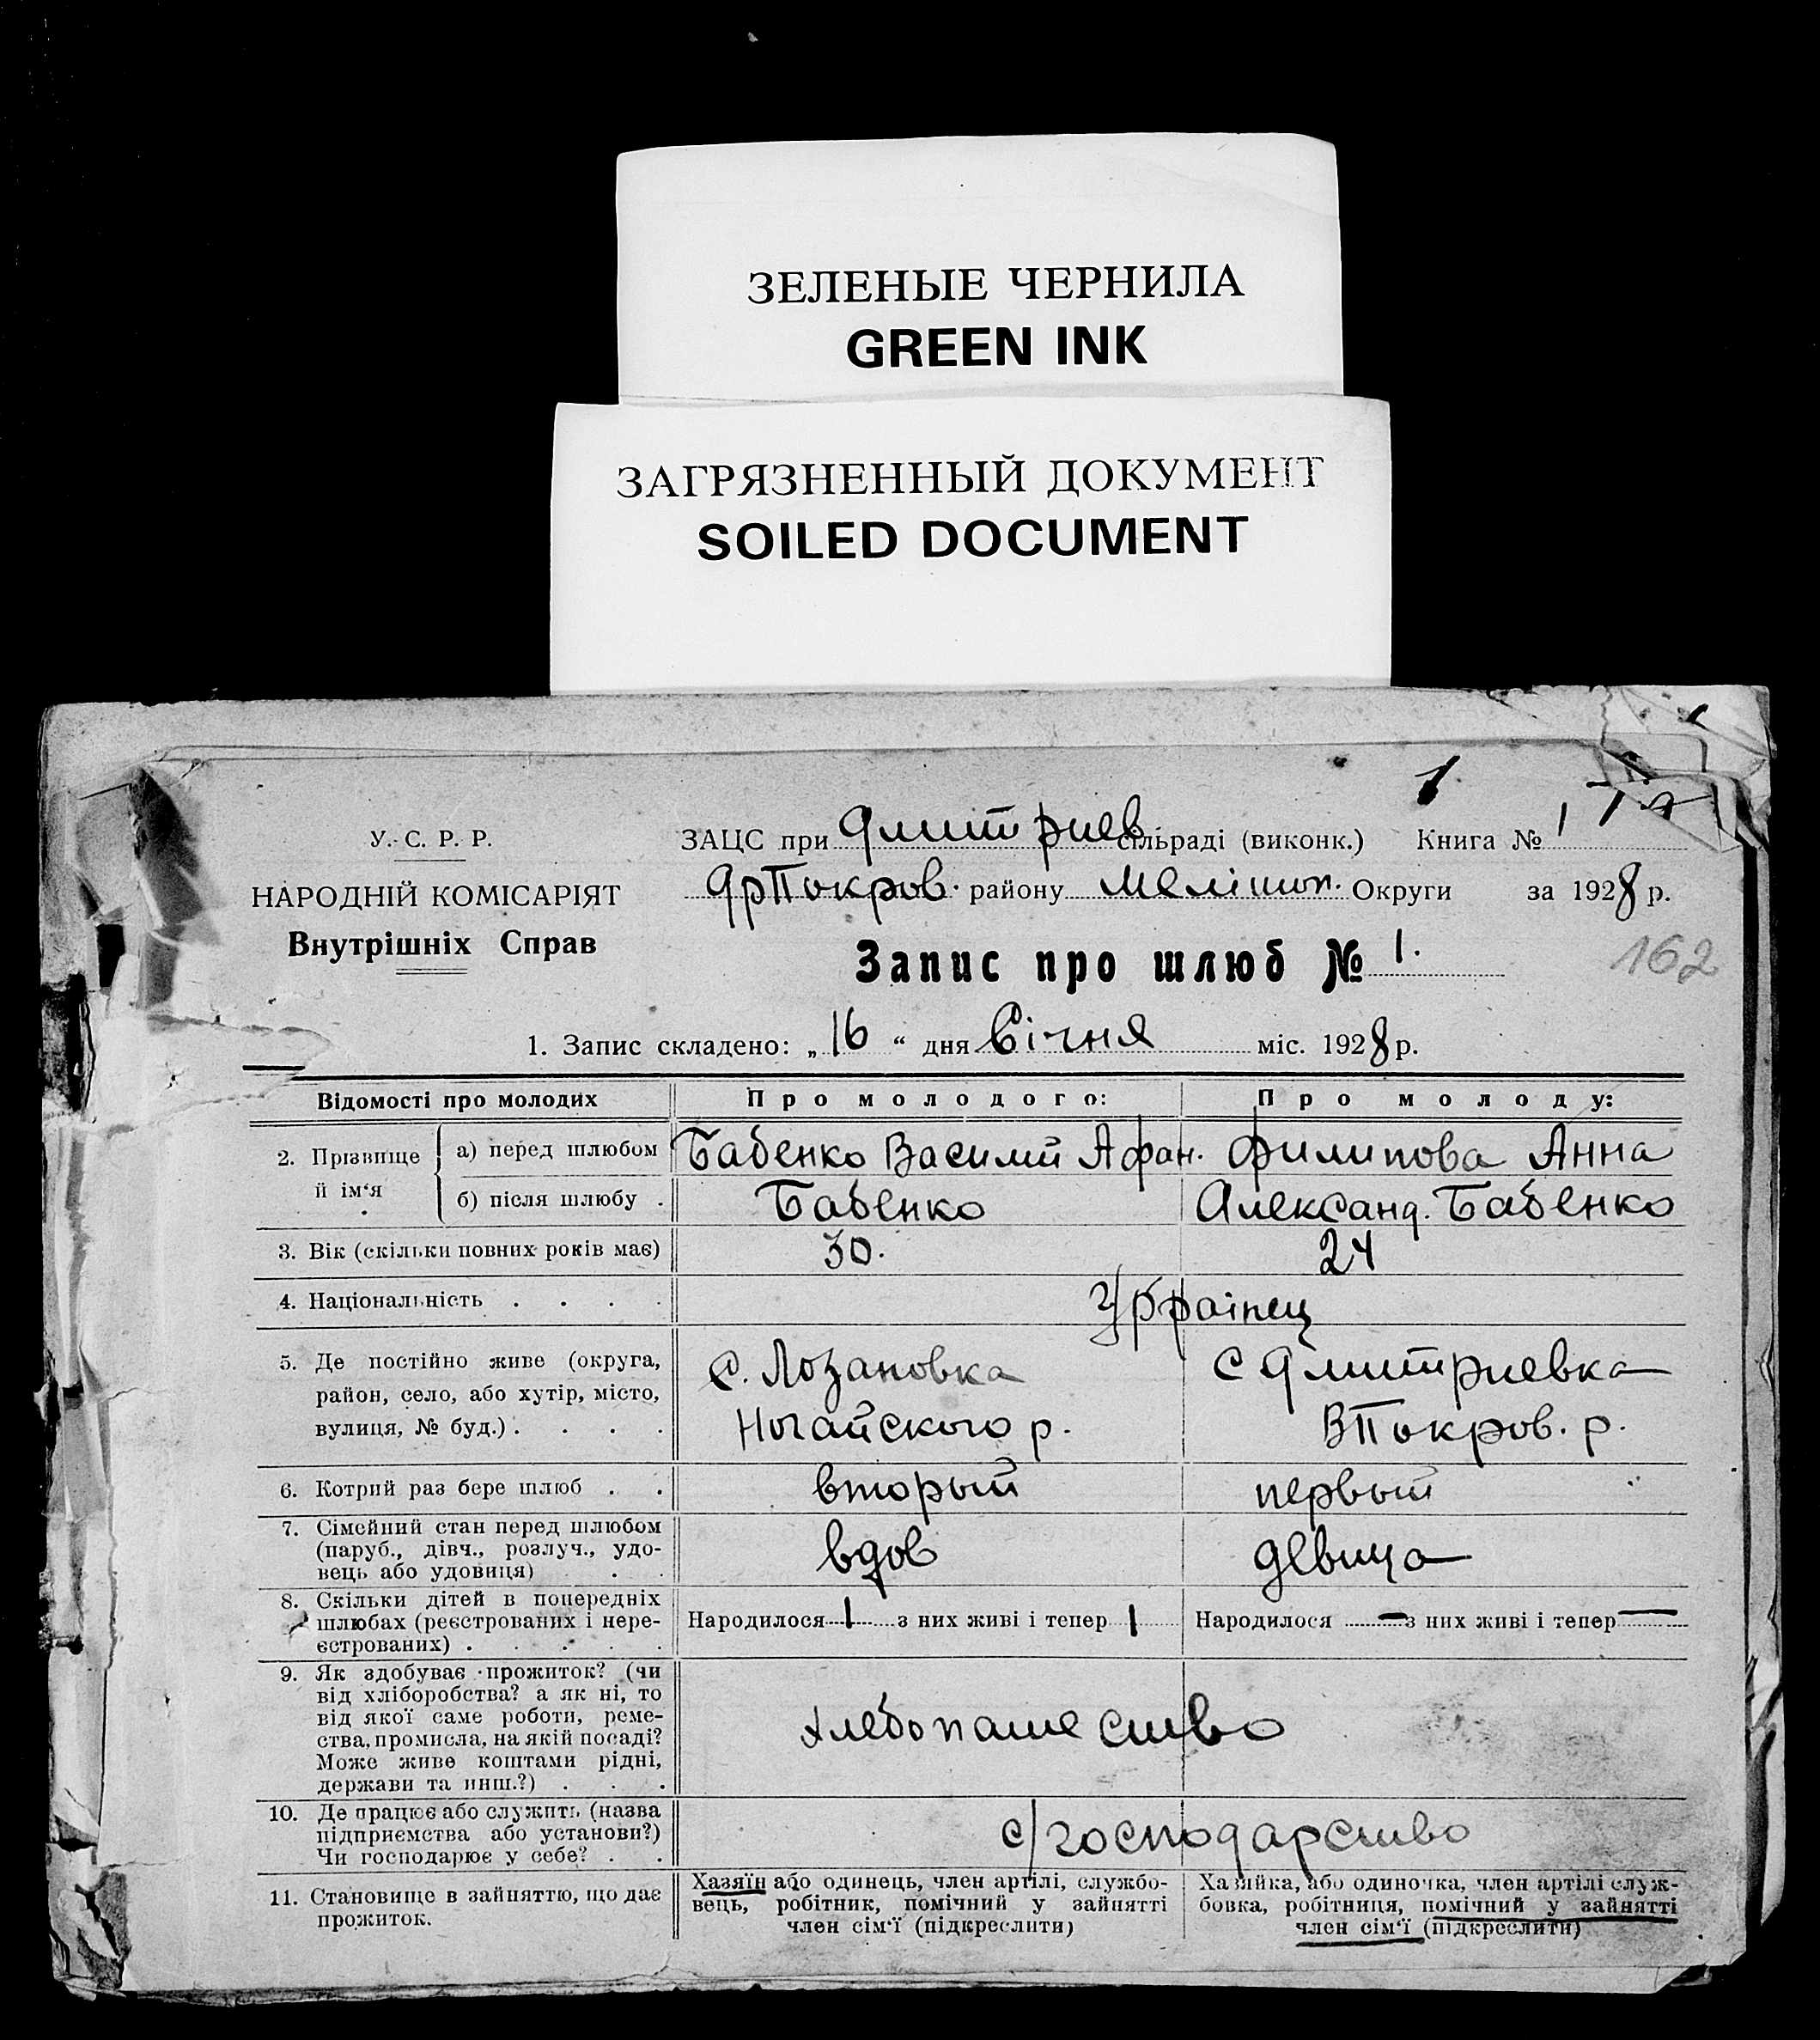 ЗЕЛЕНЫЕ ЧЕРНИЛА
GREEN INK
ЗАГРЯЗНЕННЫЙ ДОКУМЕНТ
SOILED DOCUMENT
1
У. С. Р. Р.
НАРОДНІЙ КОМІСАРІЯТ
Внутрішніх Справ
ЗАЦС при Дмитриев сільраді (виконк.) Книга № 1
Покров. району Меліտոп. Округи за 1928 р.
Запис про шлюб № 1.
162
1. Запис складено: „16“ дня Січня міс. 1928 р.
Відомості про молодих Про молодого: Про молоду:
2. Прізвище й ім‘я а) перед шлюбом Бабенко Василий Афан. Филипова Анна
б) після шлюбу . Бабенко Александ. Бабенко
3. Вік (скільки повних років має) 30. 24
4. Національність . . . .
5. Де постійно живе (округа, с. Лозановка с Дмитриевка
район, село, або хутір, місто,
вулиця, № буд.) . . . . Ногайского р. ВПокров. р.
6. Котрий раз бере шлюб . . вторый первый
7. Сімейний стан перед шлюбом
(паруб., дівч., розлуч., удо- вдов девица
вець або удовиця) . .
8. Скільки дітей в попередніх
шлюбах (реєстрованих і нере- Народилося 1 з них живі і тепер 1 Народилося — з них живі і тепер —
єстрованих) . . . . .
9. Як здобуває прожиток? (чи
від хліборобства? а як ні, то
від якої саме роботи, реме-
ства, промисла, на якій посаді? хлебопашество
Може живе коштами рідні,
держави та инш.?) . . .
10. Де працює або служить (назва
підприємства або установи?) с/господарство
Чи господарює у себе? . .
11. Становище в зайняттю, що дає
прожиток.
Хазяїн або одинець, член артілі, службо-
вець, робітник, помічний у зайнятті
член сім‘ї (підкреслити)
Хазяйка, або одиночка, член артілі служ-
бовка, робітниця, помічний у зайнятті
член сім‘ї (підкреслити)